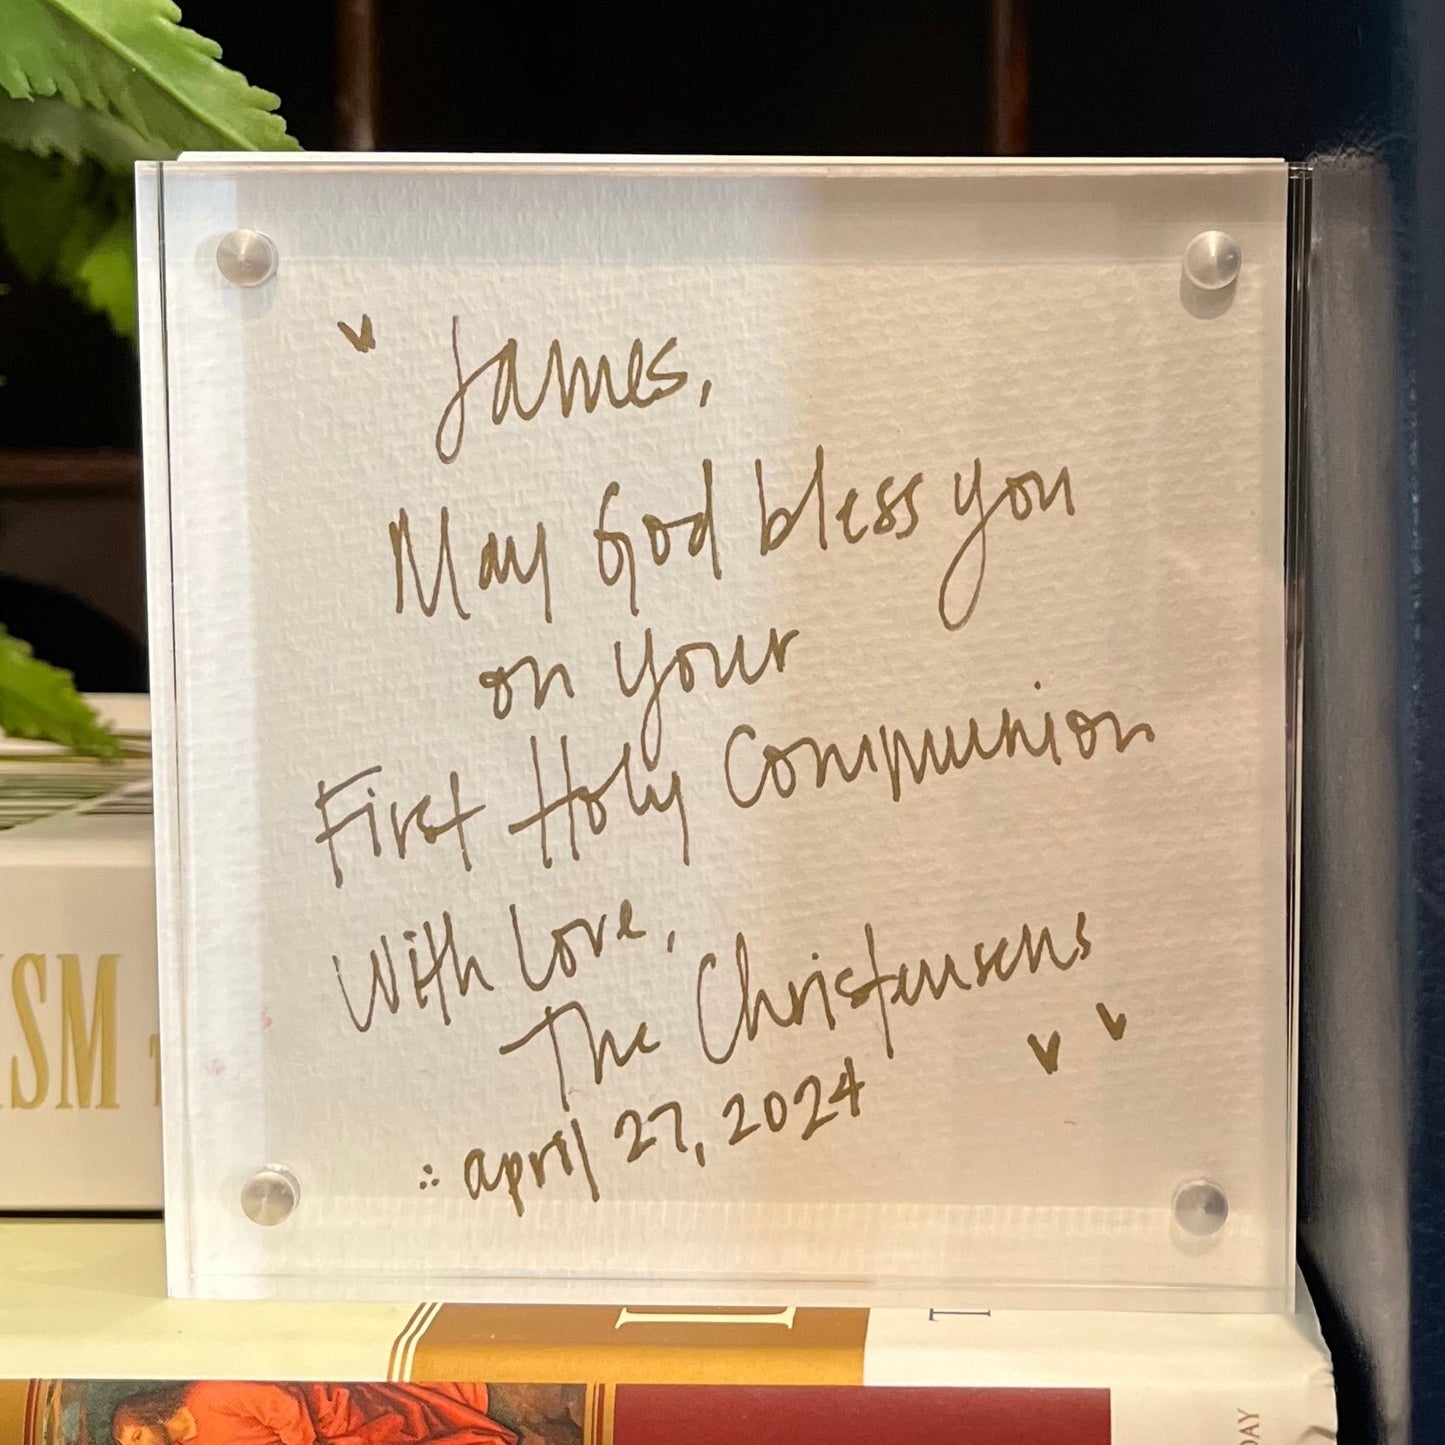 James,
May God bless you
on your
First Holy Communion
With Love,
The Christensens
april 27, 2024
ISM
DAY